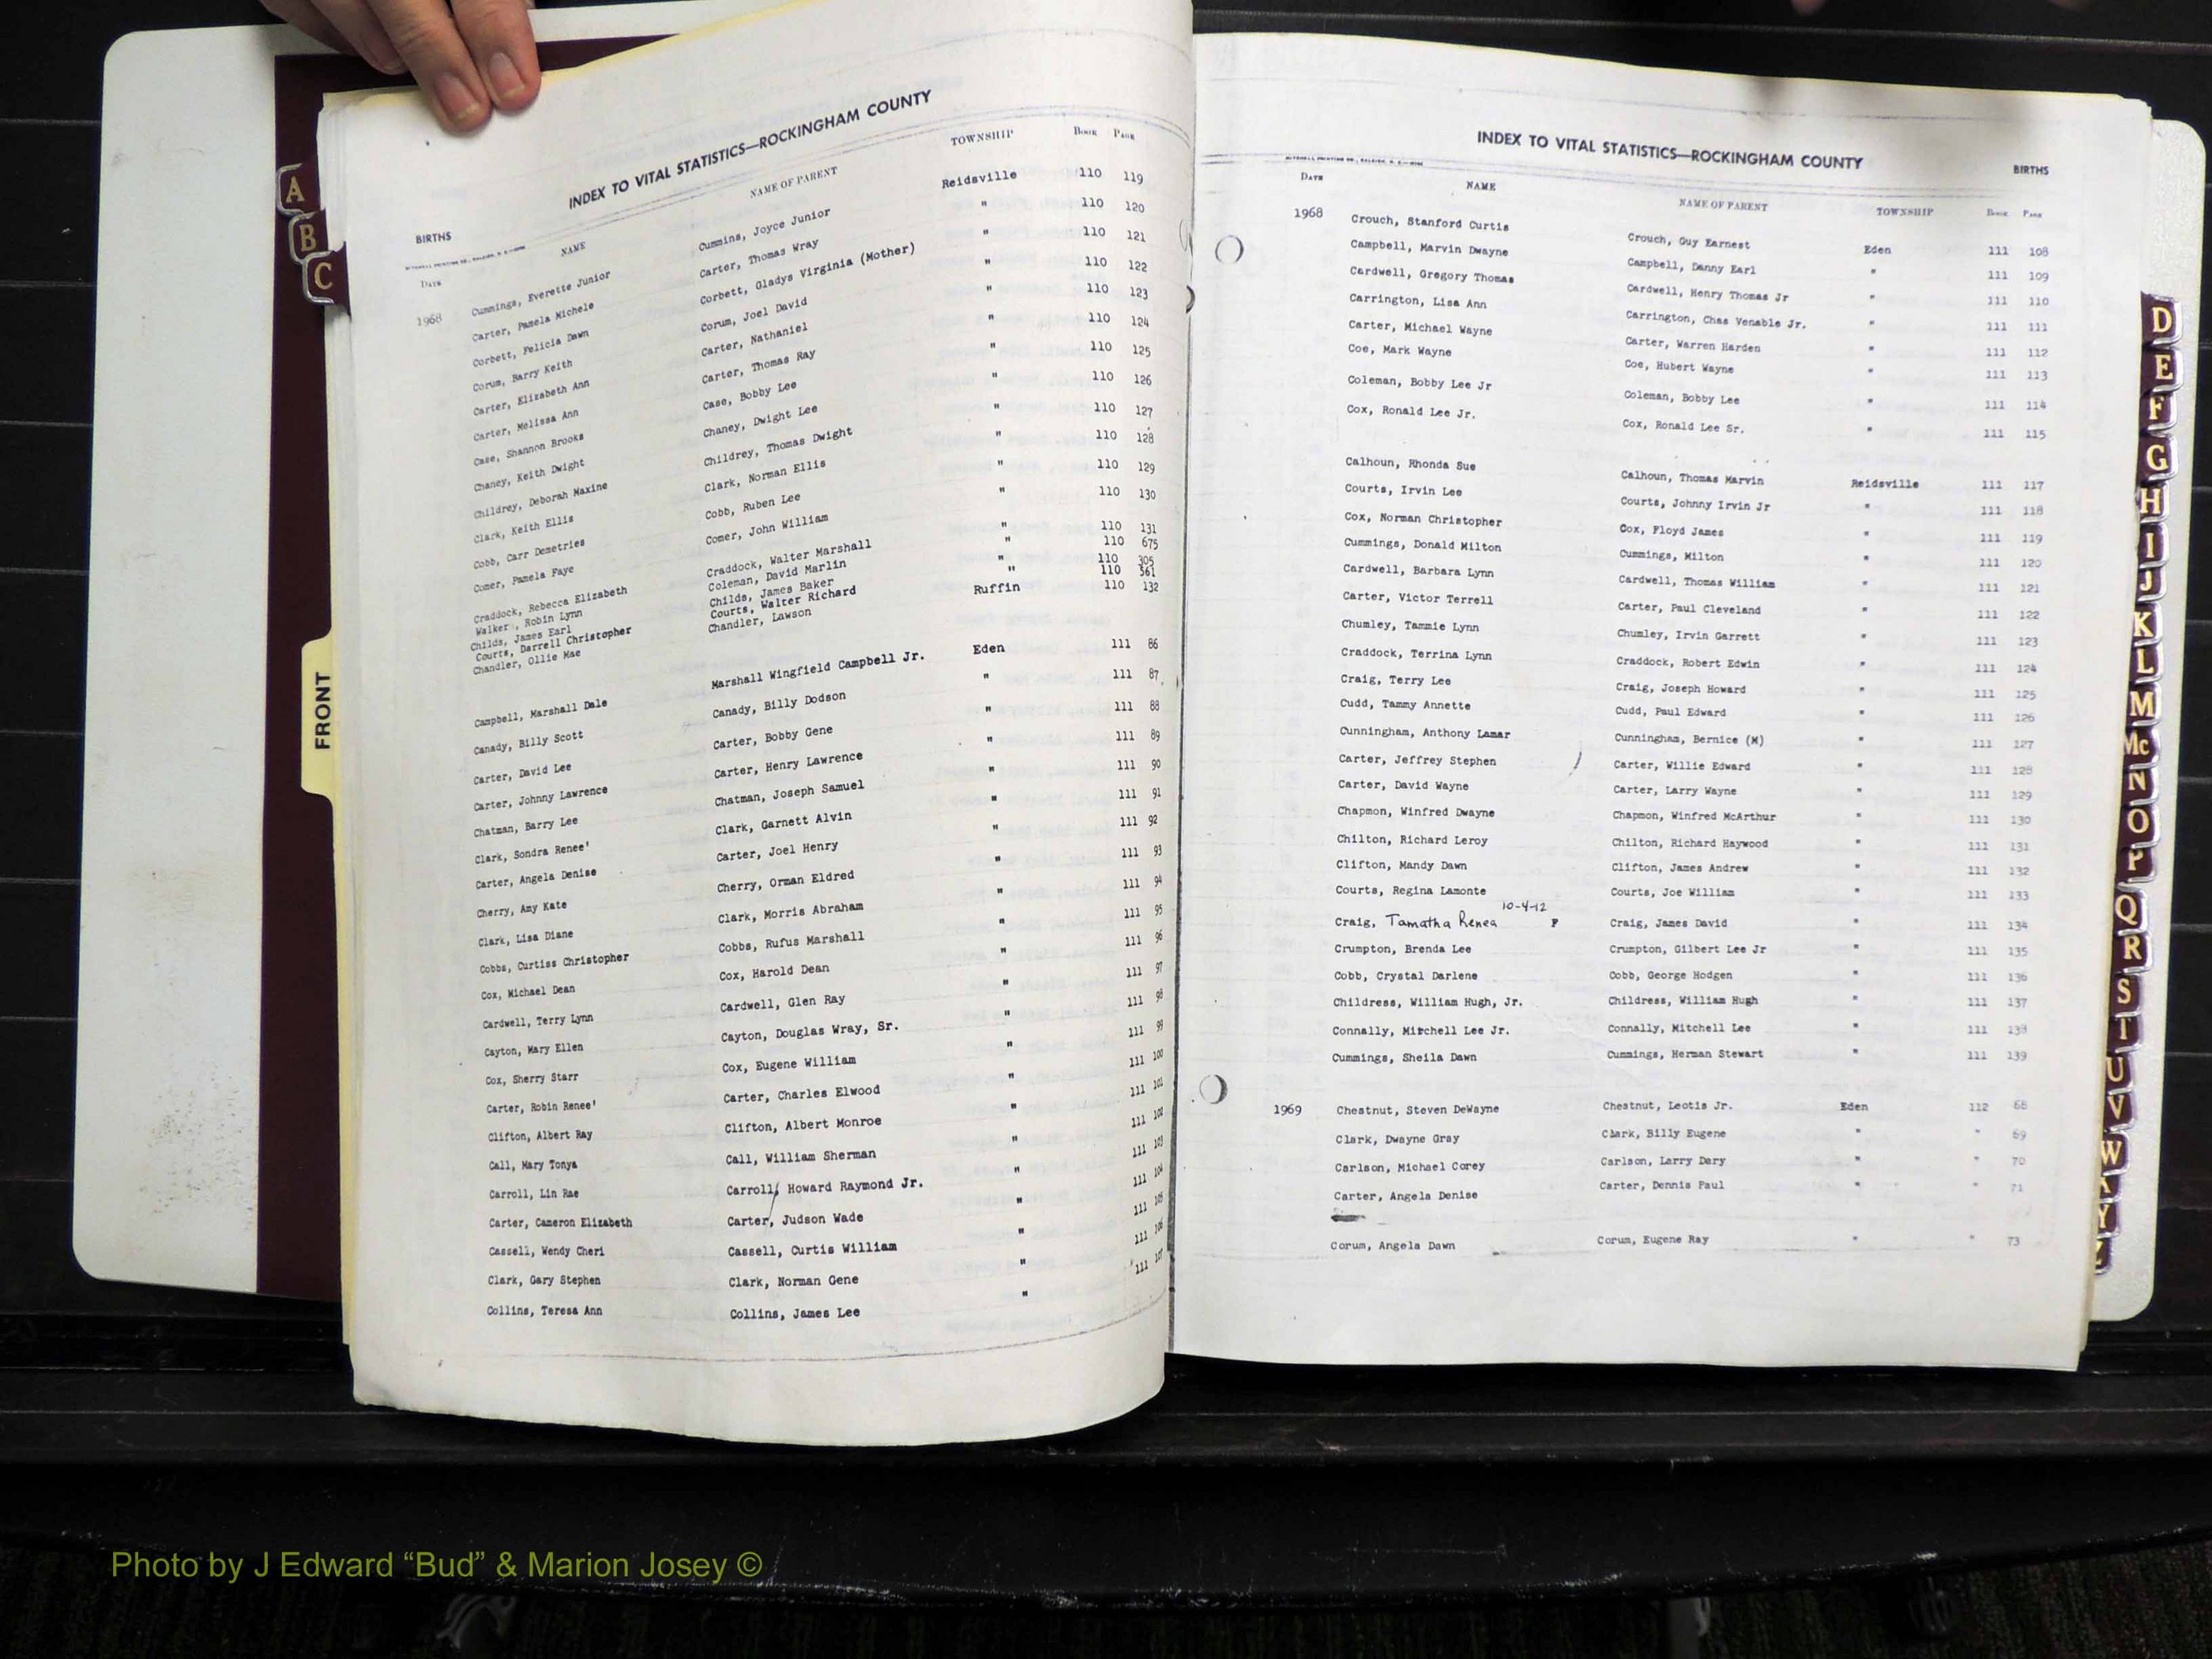 INDEX TO VITAL STATISTICS—ROCKINGHAM COUNTY
BIRTHS
DATE NAME NAME OF PARENT TOWNSHIP BOOK PAGE
1968 Cummings, Everette Junior Cummins, Joyce Junior Reidsville 110 119
Carter, Pamela Michele Carter, Thomas Wray " 110 120
Corbett, Felicia Dawn Corbett, Gladys Virginia (Mother) " 110 121
Corum, Barry Keith Corum, Joel David " 110 122
Carter, Elizabeth Ann Carter, Nathaniel " 110 123
Carter, Melissa Ann Carter, Thomas Ray " 110 124
Case, Shannon Brooks Case, Bobby Lee " 110 125
Chaney, Keith Dwight Chaney, Dwight Lee " 110 126
Childrey, Deborah Maxine Childrey, Thomas Dwight " 110 127
Clark, Keith Ellis Clark, Norman Ellis " 110 128
Cobb, Carr Demetries Cobb, Ruben Lee " 110 129
Comer, Pamela Faye Comer, John William " 110 130
Craddock, Rebecca Elizabeth Craddock, Walter Marshall " 110 131
Walker, Robin Lynn Coleman, David Marlin " 110 675
Childs, James Earl Childs, James Baker " 110 305
Courts, Darrell Christopher Courts, Walter Richard " 110 361
Chandler, Ollie Mae Chandler, Lawson Ruffin 110 132
Campbell, Marshall Dale Marshall Wingfield Campbell Jr. Eden 111 86
Canady, Billy Scott Canady, Billy Dodson " 111 87
Carter, David Lee Carter, Bobby Gene " 111 88
Carter, Johnny Lawrence Carter, Henry Lawrence " 111 89
Chatman, Barry Lee Chatman, Joseph Samuel " 111 90
Clark, Sondra Renee' Clark, Garnett Alvin " 111 91
Carter, Angela Denise Carter, Joel Henry " 111 92
Cherry, Amy Kate Cherry, Orman Eldred " 111 93
Clark, Lisa Diane Clark, Morris Abraham " 111 94
Cobbs, Curtiss Christopher Cobbs, Rufus Marshall " 111 95
Cox, Michael Dean Cox, Harold Dean " 111 96
Cardwell, Terry Lynn Cardwell, Glen Ray " 111 97
Cayton, Mary Ellen Cayton, Douglas Wray, Sr. " 111 98
Cox, Sherry Starr Cox, Eugene William " 111 99
Carter, Robin Renee' Carter, Charles Elwood " 111 100
Clifton, Albert Ray Clifton, Albert Monroe " 111 101
Call, Mary Tonya Call, William Sherman " 111 102
Carroll, Lin Rae Carroll, Howard Raymond Jr. " 111 103
Carter, Cameron Elizabeth Carter, Judson Wade " 111 104
Cassell, Wendy Cheri Cassell, Curtis William " 111 105
Clark, Gary Stephen Clark, Norman Gene " 111 106
Collins, Teresa Ann Collins, James Lee " 111 107
INDEX TO VITAL STATISTICS—ROCKINGHAM COUNTY
BIRTHS
DATE NAME NAME OF PARENT TOWNSHIP BOOK PAGE
1968 Crouch, Stanford Curtis Crouch, Guy Earnest Eden 111 108
Campbell, Marvin Dwayne Campbell, Danny Earl " 111 109
Cardwell, Gregory Thomas Cardwell, Henry Thomas Jr " 111 110
Carrington, Lisa Ann Carrington, Chas Venable Jr. " 111 111
Carter, Michael Wayne Carter, Warren Harden " 111 112
Coe, Mark Wayne Coe, Hubert Wayne " 111 113
Coleman, Bobby Lee Jr Coleman, Bobby Lee " 111 114
Cox, Ronald Lee Jr. Cox, Ronald Lee Sr. " 111 115
Calhoun, Rhonda Sue Calhoun, Thomas Marvin Reidsville 111 117
Courts, Irvin Lee Courts, Johnny Irvin Jr " 111 118
Cox, Norman Christopher Cox, Floyd James " 111 119
Cummings, Donald Milton Cummings, Milton " 111 120
Cardwell, Barbara Lynn Cardwell, Thomas William " 111 121
Carter, Victor Terrell Carter, Paul Cleveland " 111 122
Chumley, Tammie Lynn Chumley, Irvin Garrett " 111 123
Craddock, Terrina Lynn Craddock, Robert Edwin " 111 124
Craig, Terry Lee Craig, Joseph Howard " 111 125
Cudd, Tammy Annette Cudd, Paul Edward " 111 126
Cunningham, Anthony Lamar Cunningham, Bernice (M) " 111 127
Carter, Jeffrey Stephen Carter, Willie Edward " 111 128
Carter, David Wayne Carter, Larry Wayne " 111 129
Chapmon, Winfred Dwayne Chapmon, Winfred McArthur " 111 130
Chilton, Richard Leroy Chilton, Richard Haywood " 111 131
Clifton, Mandy Dawn Clifton, James Andrew " 111 132
Courts, Regina Lamonte Courts, Joe William " 111 133
10-4-12
Craig, Tamatha Renea F Craig, James David " 111 134
Crumpton, Brenda Lee Crumpton, Gilbert Lee Jr " 111 135
Cobb, Crystal Darlene Cobb, George Hodgen " 111 136
Childress, William Hugh, Jr. Childress, William Hugh " 111 137
Connally, Mitchell Lee Jr. Connally, Mitchell Lee " 111 138
Cummings, Sheila Dawn Cummings, Herman Stewart " 111 139
1969 Chestnut, Steven DeWayne Chestnut, Leotis Jr. Eden 112 68
Clark, Dwayne Gray Clark, Billy Eugene " " 69
Carlson, Michael Corey Carlson, Larry Dary " " 70
Carter, Angela Denise Carter, Dennis Paul " " 71
Corum, Angela Dawn Corum, Eugene Ray " " 73
A
B
C
FRONT
D
E
F
G
H
I
J
K
L
M
Mc
N
O
P
Q
R
S
T
U
V
W
Y
Photo by J Edward “Bud” & Marion Josey ©